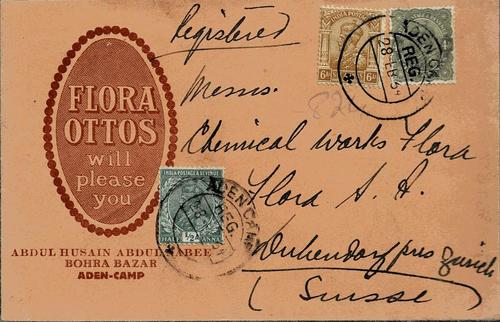 Registered
FLORA
OTTOS
will
please
you
Messrs.
Chemical Works Flora
Flora S. A.
Dubendorf pres Zurich
(Suisse)
INDIA POSTAGE
6As 6As
ADEN CAMP
REG
INDIA POSTAGE & REVENUE
HALF 1/2 ANNA
ADEN CAMP
REG
ABDUL HUSAIN
BOHRA BAZAR
ADEN-CAMP